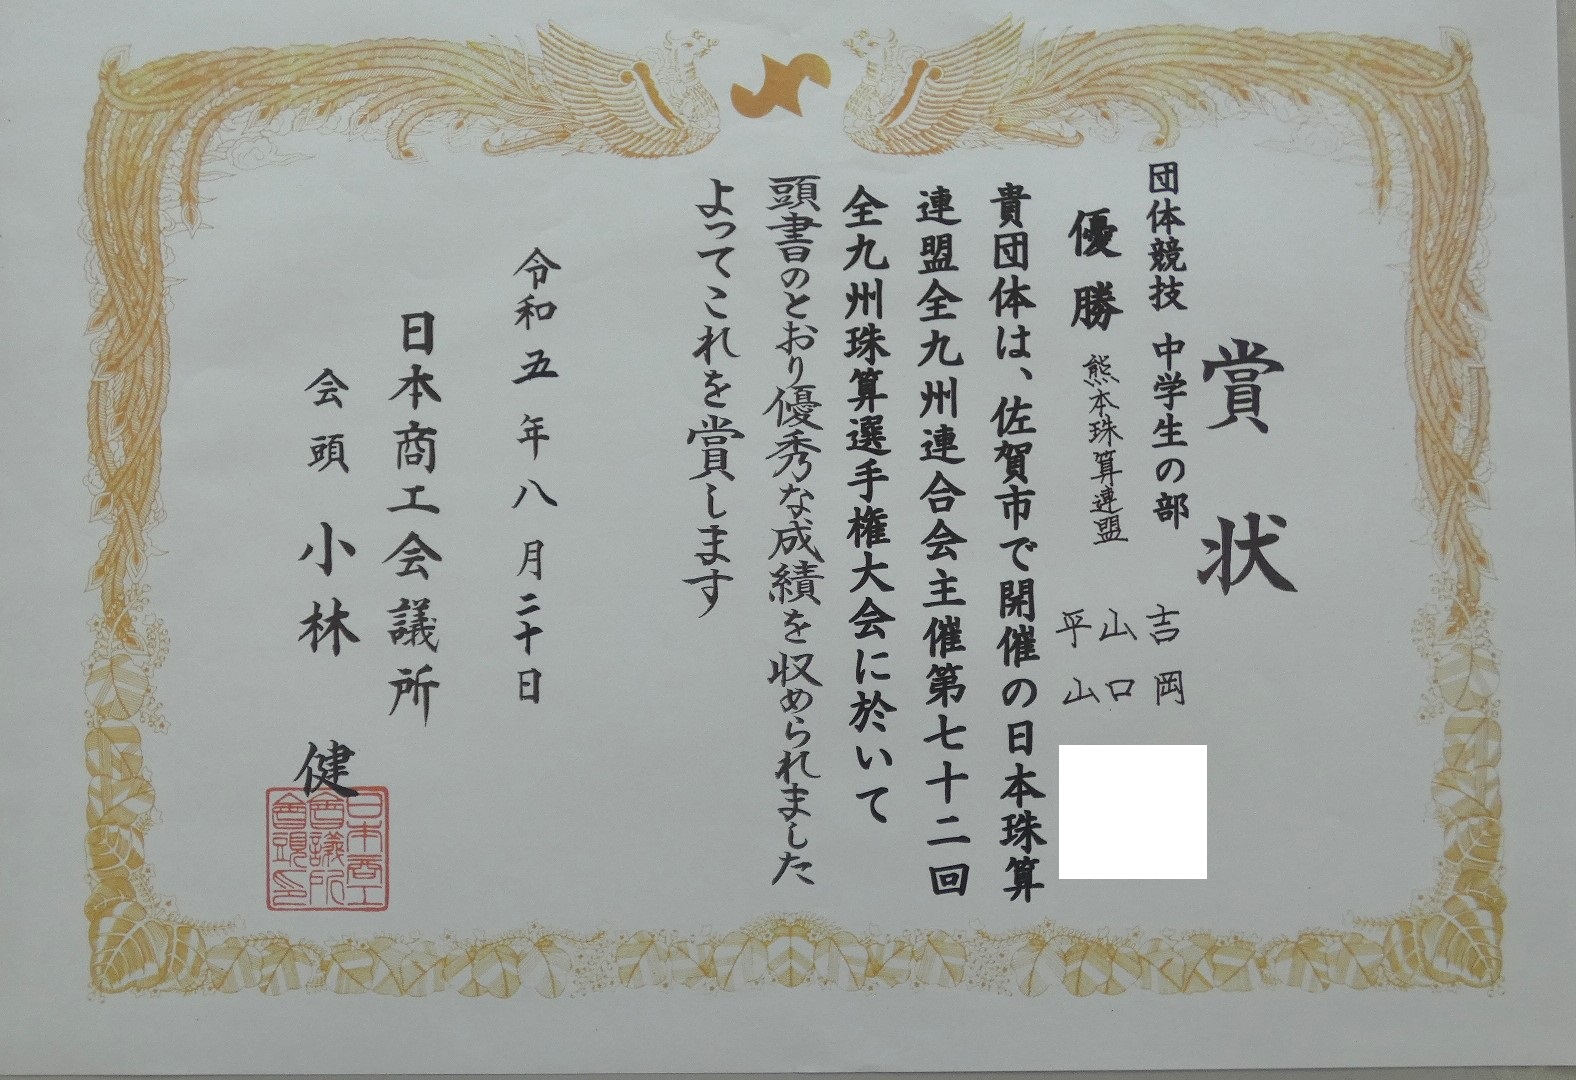 賞状
団体競技 中学生の部
優勝 熊本珠算連盟
吉岡
山口
平山
貴団体は、佐賀市で開催の日本珠算
連盟全九州連合会主催第七十二回
全九州珠算選手権大会に於いて
頭書のとおり優秀な成績を収められました
よってこれを賞します
令和五年八月二十日
日本商工会議所
会頭 小林 健
日本商工
會議所
會頭之印